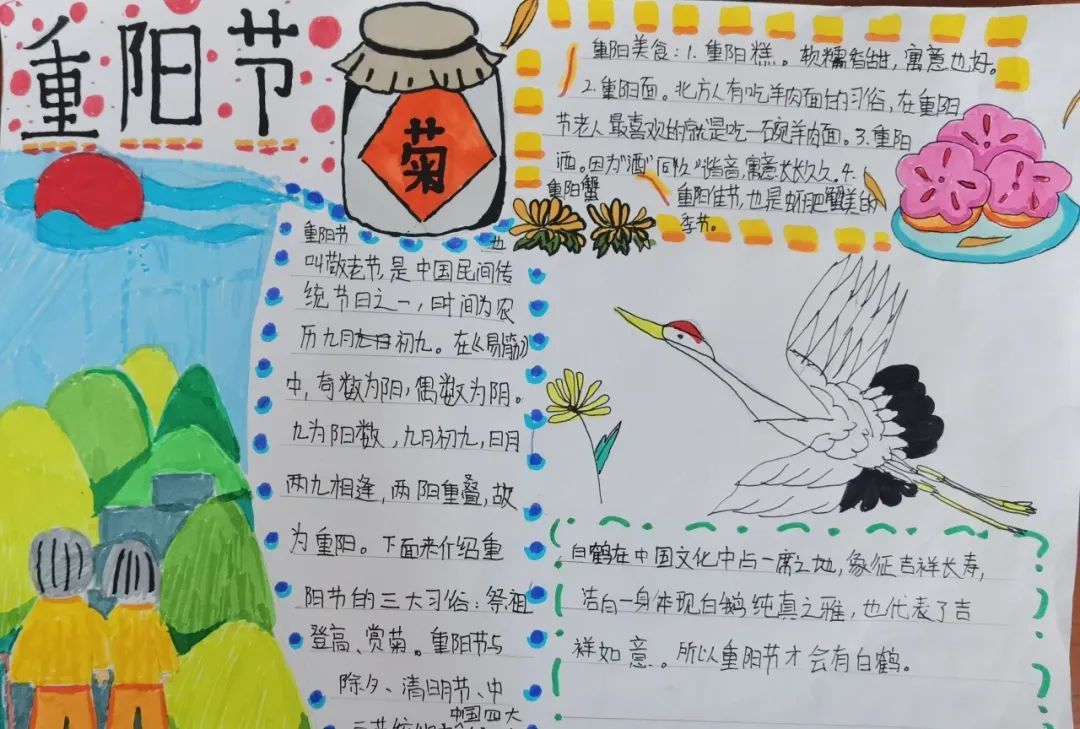 重阳节
菊
重阳美食：1. 重阳糕。软糯香甜，寓意也好。
2. 重阳面。北方人有吃羊肉面的习俗，在重阳
节老人最喜欢的就是吃一碗羊肉面。3. 重阳
酒。因为"酒"同"久"谐音，寓意长长久久。4.
重阳蟹 重阳佳节，也是蟹美的
季节。
重阳节 也
叫敬老节，是中国民间传
统节日之一，时间为农
历九月初九。在《易
中，奇数为阳，偶数为阴。
九为阳数，九月初九，日月
两九相逢，两阳重叠，故
为重阳。下面来介绍重
阳节的三大习俗：祭祖
登高、赏菊。重阳节与
除夕、清明节、中
中国四大
白鹤在中国文化中占一席之地，象征吉祥长寿，
洁白一身体现白鹤纯真之雅，也代表了吉
祥如意。所以重阳节才会有白鹤。